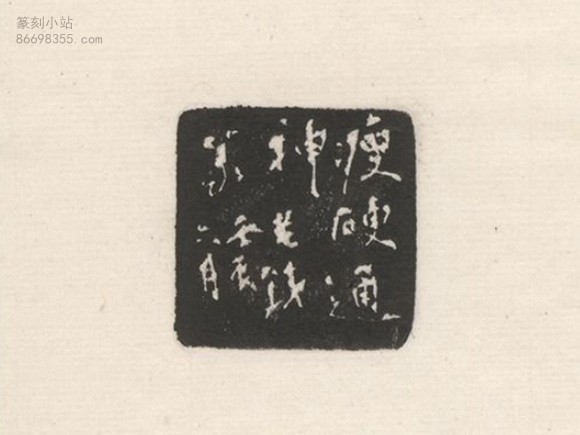 篆刻小站
86698355.com
瘦硬通
神苦鐵
篆
壬辰
六月